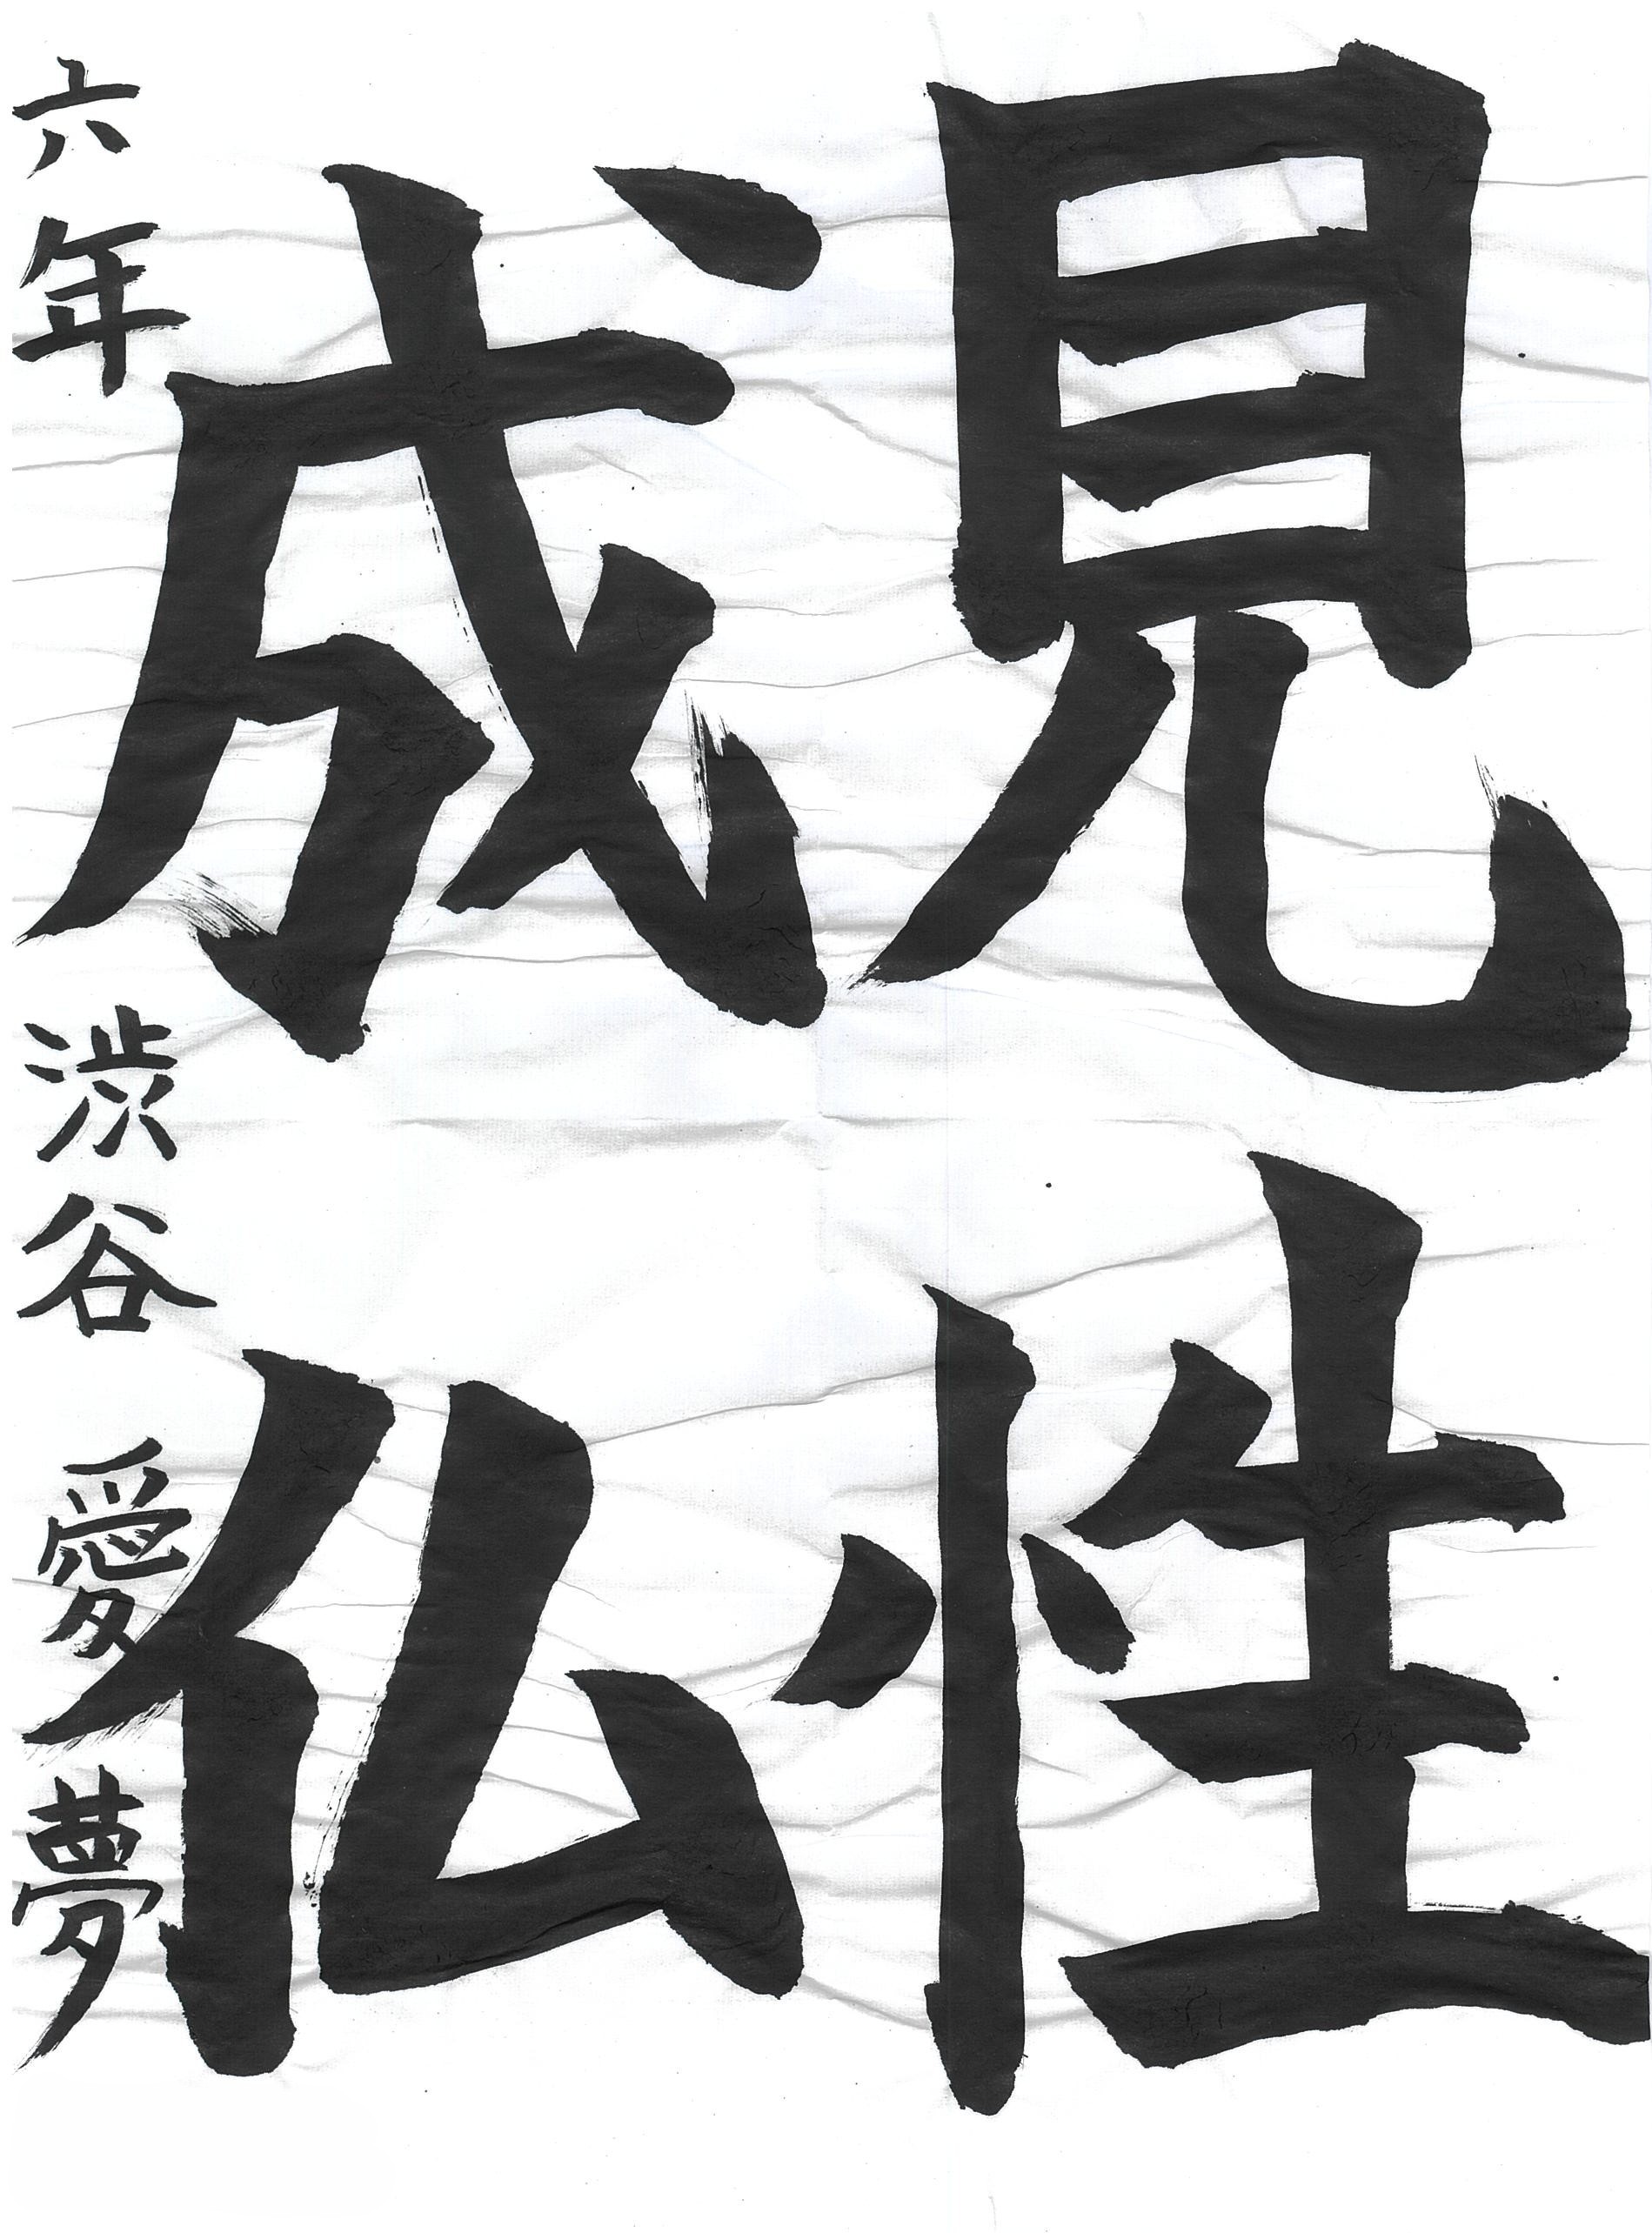 見性
成仏
六年 渋谷 愛夢